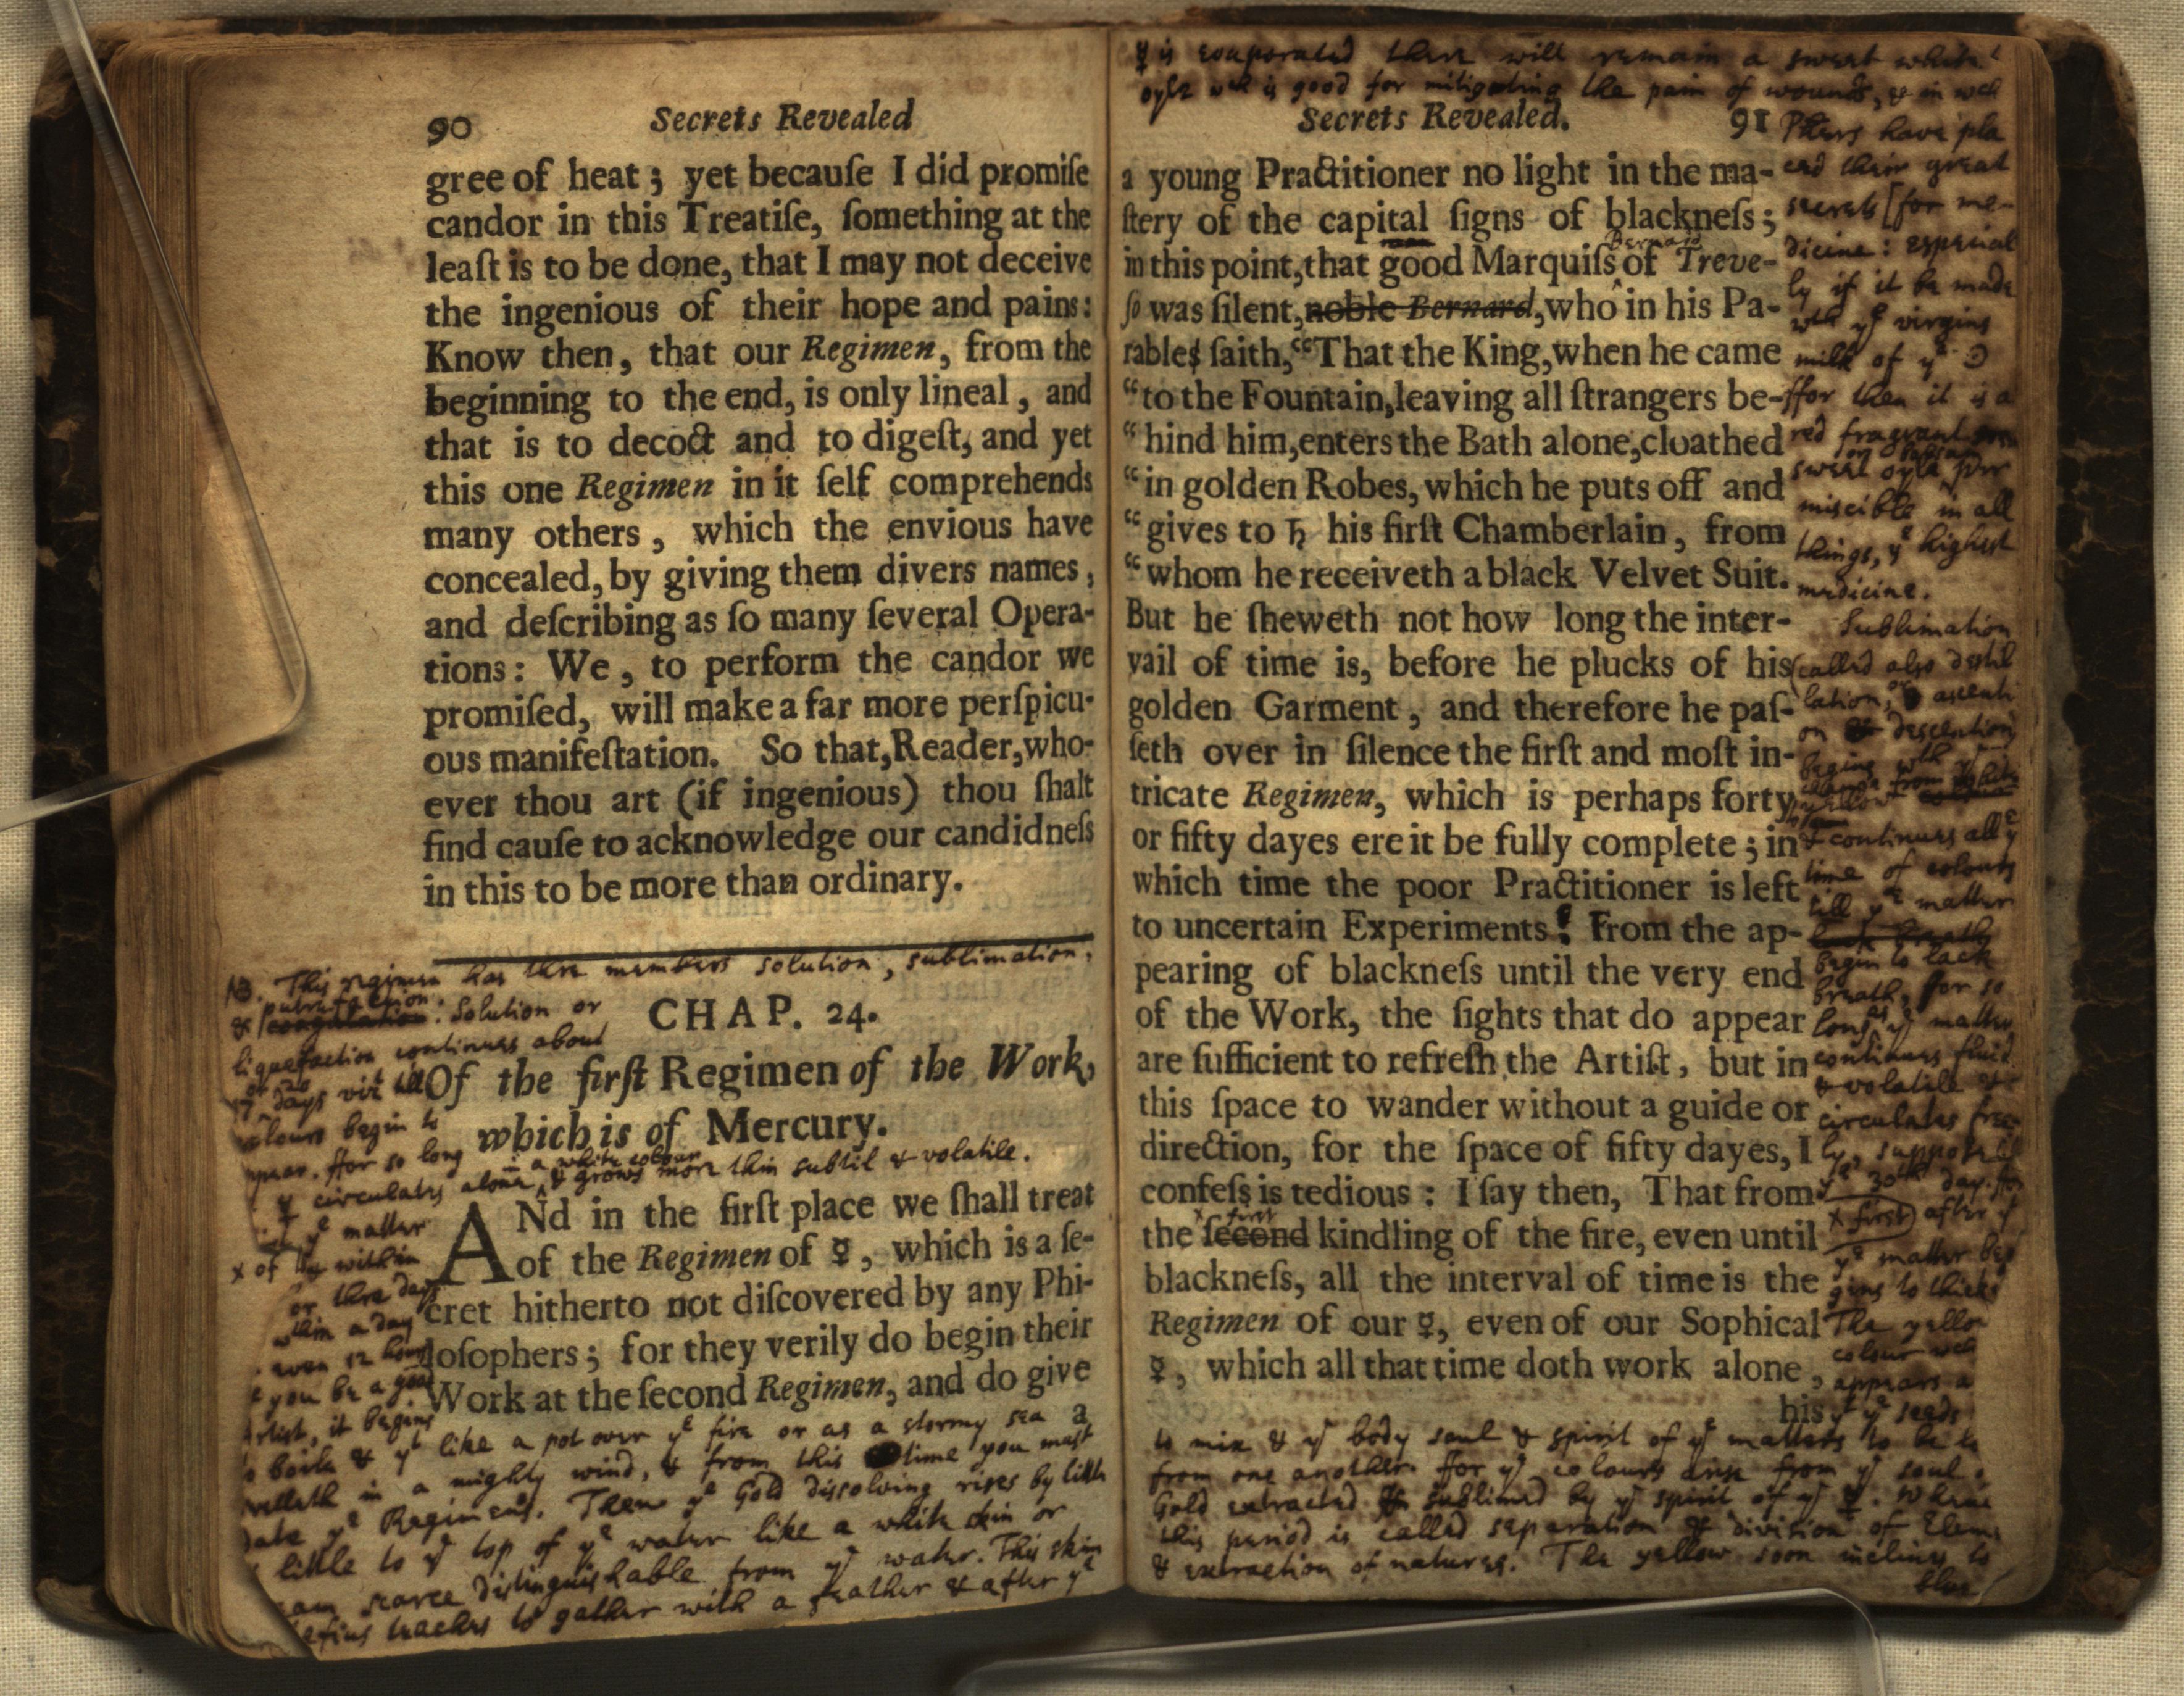 90 Secrets Revealed
gree of heat; yet becauſe I did promiſe
candor in this Treatiſe, ſomething at the
leaſt is to be done, that I may not deceive
the ingenious of their hope and pains:
Know then, that our Regimen, from the
beginning to the end, is only lineal, and
that is to decoct and to digeſt, and yet
this one Regimen in it ſelf comprehends
many others, which the envious have
concealed, by giving them divers names,
and deſcribing as ſo many ſeveral Opera-
tions: We, to perform the candor we
promiſed, will make a far more perſpicu-
ous manifeſtation. So that, Reader, who-
ever thou art (if ingenious) thou ſhalt
find cauſe to acknowledge our candidneſs
in this to be more than ordinary.
This regimen has three members solution, sublimation,
& putrefaction. Solution or
liquefaction continues about
days viz till
colours begin to
appear. ffor so long
☿ circulates alone in a white colour & grows more thin subtil & volatile.
CHAP. 24.
Of the firſt Regimen of the Work,
which is of Mercury.
ANd in the firſt place we ſhall treat
of the Regimen of ☿, which is a ſe-
cret hitherto not diſcovered by any Phi-
loſophers; for they verily do begin their
Work at the ſecond Regimen, and do give
a
yᵉ matter
x of within
or three days
within a day
even 12 hours
you be a good
Artist, it begins
to boile & yᵗ like a pot over yᵉ fire or as a stormy sea
in a mighty wind, & from this time you must
date yᵉ Regimens. Then yᵉ Gold dissolving rises by little
& little to yᵉ top of yᵉ water like a white skin or
cream scarce distinguishable from yᵉ water. This skin
teaches to gather with a feather & after yᵉ
☿ is evaporated there will remain a sweet white
oyle wᶜʰ is good for mitigating the pain of wounds, & in wᶜʰ
Secrets Revealed. 91
Phers have pla
ced their great
secrets [for me-
dicine: especial
ly if it be made
wᵗʰ yᵉ virgins
milk of yᵉ ☽
ffor then it is a
red fragrant
sweet oyle or balsam per
miscible in all
things, yᵉ highest
medicine.
a young Practitioner no light in the ma-
ſtery of the capital ſigns of blackneſs;
in this point, that good Marquiſs of Treve-
Bernard
ſo was ſilent, noble Bernard, who in his Pa-
rables ſaith, “That the King, when he came
“to the Fountain, leaving all ſtrangers be-
“hind him, enters the Bath alone, cloathed
“in golden Robes, which he puts off and
“gives to ♄ his firſt Chamberlain, from
“whom he receiveth a black Velvet Suit.
But he ſheweth not how long the inter-
vail of time is, before he plucks of his
golden Garment, and therefore he paſ-
ſeth over in ſilence the firſt and moſt in-
tricate Regimen, which is perhaps forty
or fifty dayes ere it be fully complete; in
which time the poor Practitioner is left
to uncertain Experiments! From the ap-
pearing of blackneſs until the very end
of the Work, the ſights that do appear
are ſufficient to refreſh the Artiſt, but in
this ſpace to wander without a guide or
direction, for the ſpace of fifty dayes, I
confeſs is tedious: I ſay then, That from
the ſecond first kindling of the fire, even until
blackneſs, all the interval of time is the
Regimen of our ☿, even of our Sophical
☿, which all that time doth work alone,
his
Sublimation
(called also destil
lation, or ascenti
on & descention)
begins wᵗʰ yᵉ
& continues all yᵉ
time of colours
till yᵉ matter
begin to lack
breath, ffor so
long as yᵉ matter
continues fluid
& volatile &
circulates free
ly, suppose
yᵉ 30ᵗʰ day.
x first) after
yᵉ matter be
gins to thicken
The yellow
colour wᶜʰ
appears a
yᵉ seeds
to mix & yᵉ body soul & spirit of yᵉ matters to be
from one another. ffor yᵉ colours arise from yᵉ soul
Gold extracted & sublimed by yᵉ spirit of yᵉ ☿.
this period is called separation & division of Elem
& extraction of natures. The yellow soon inclines to
blue